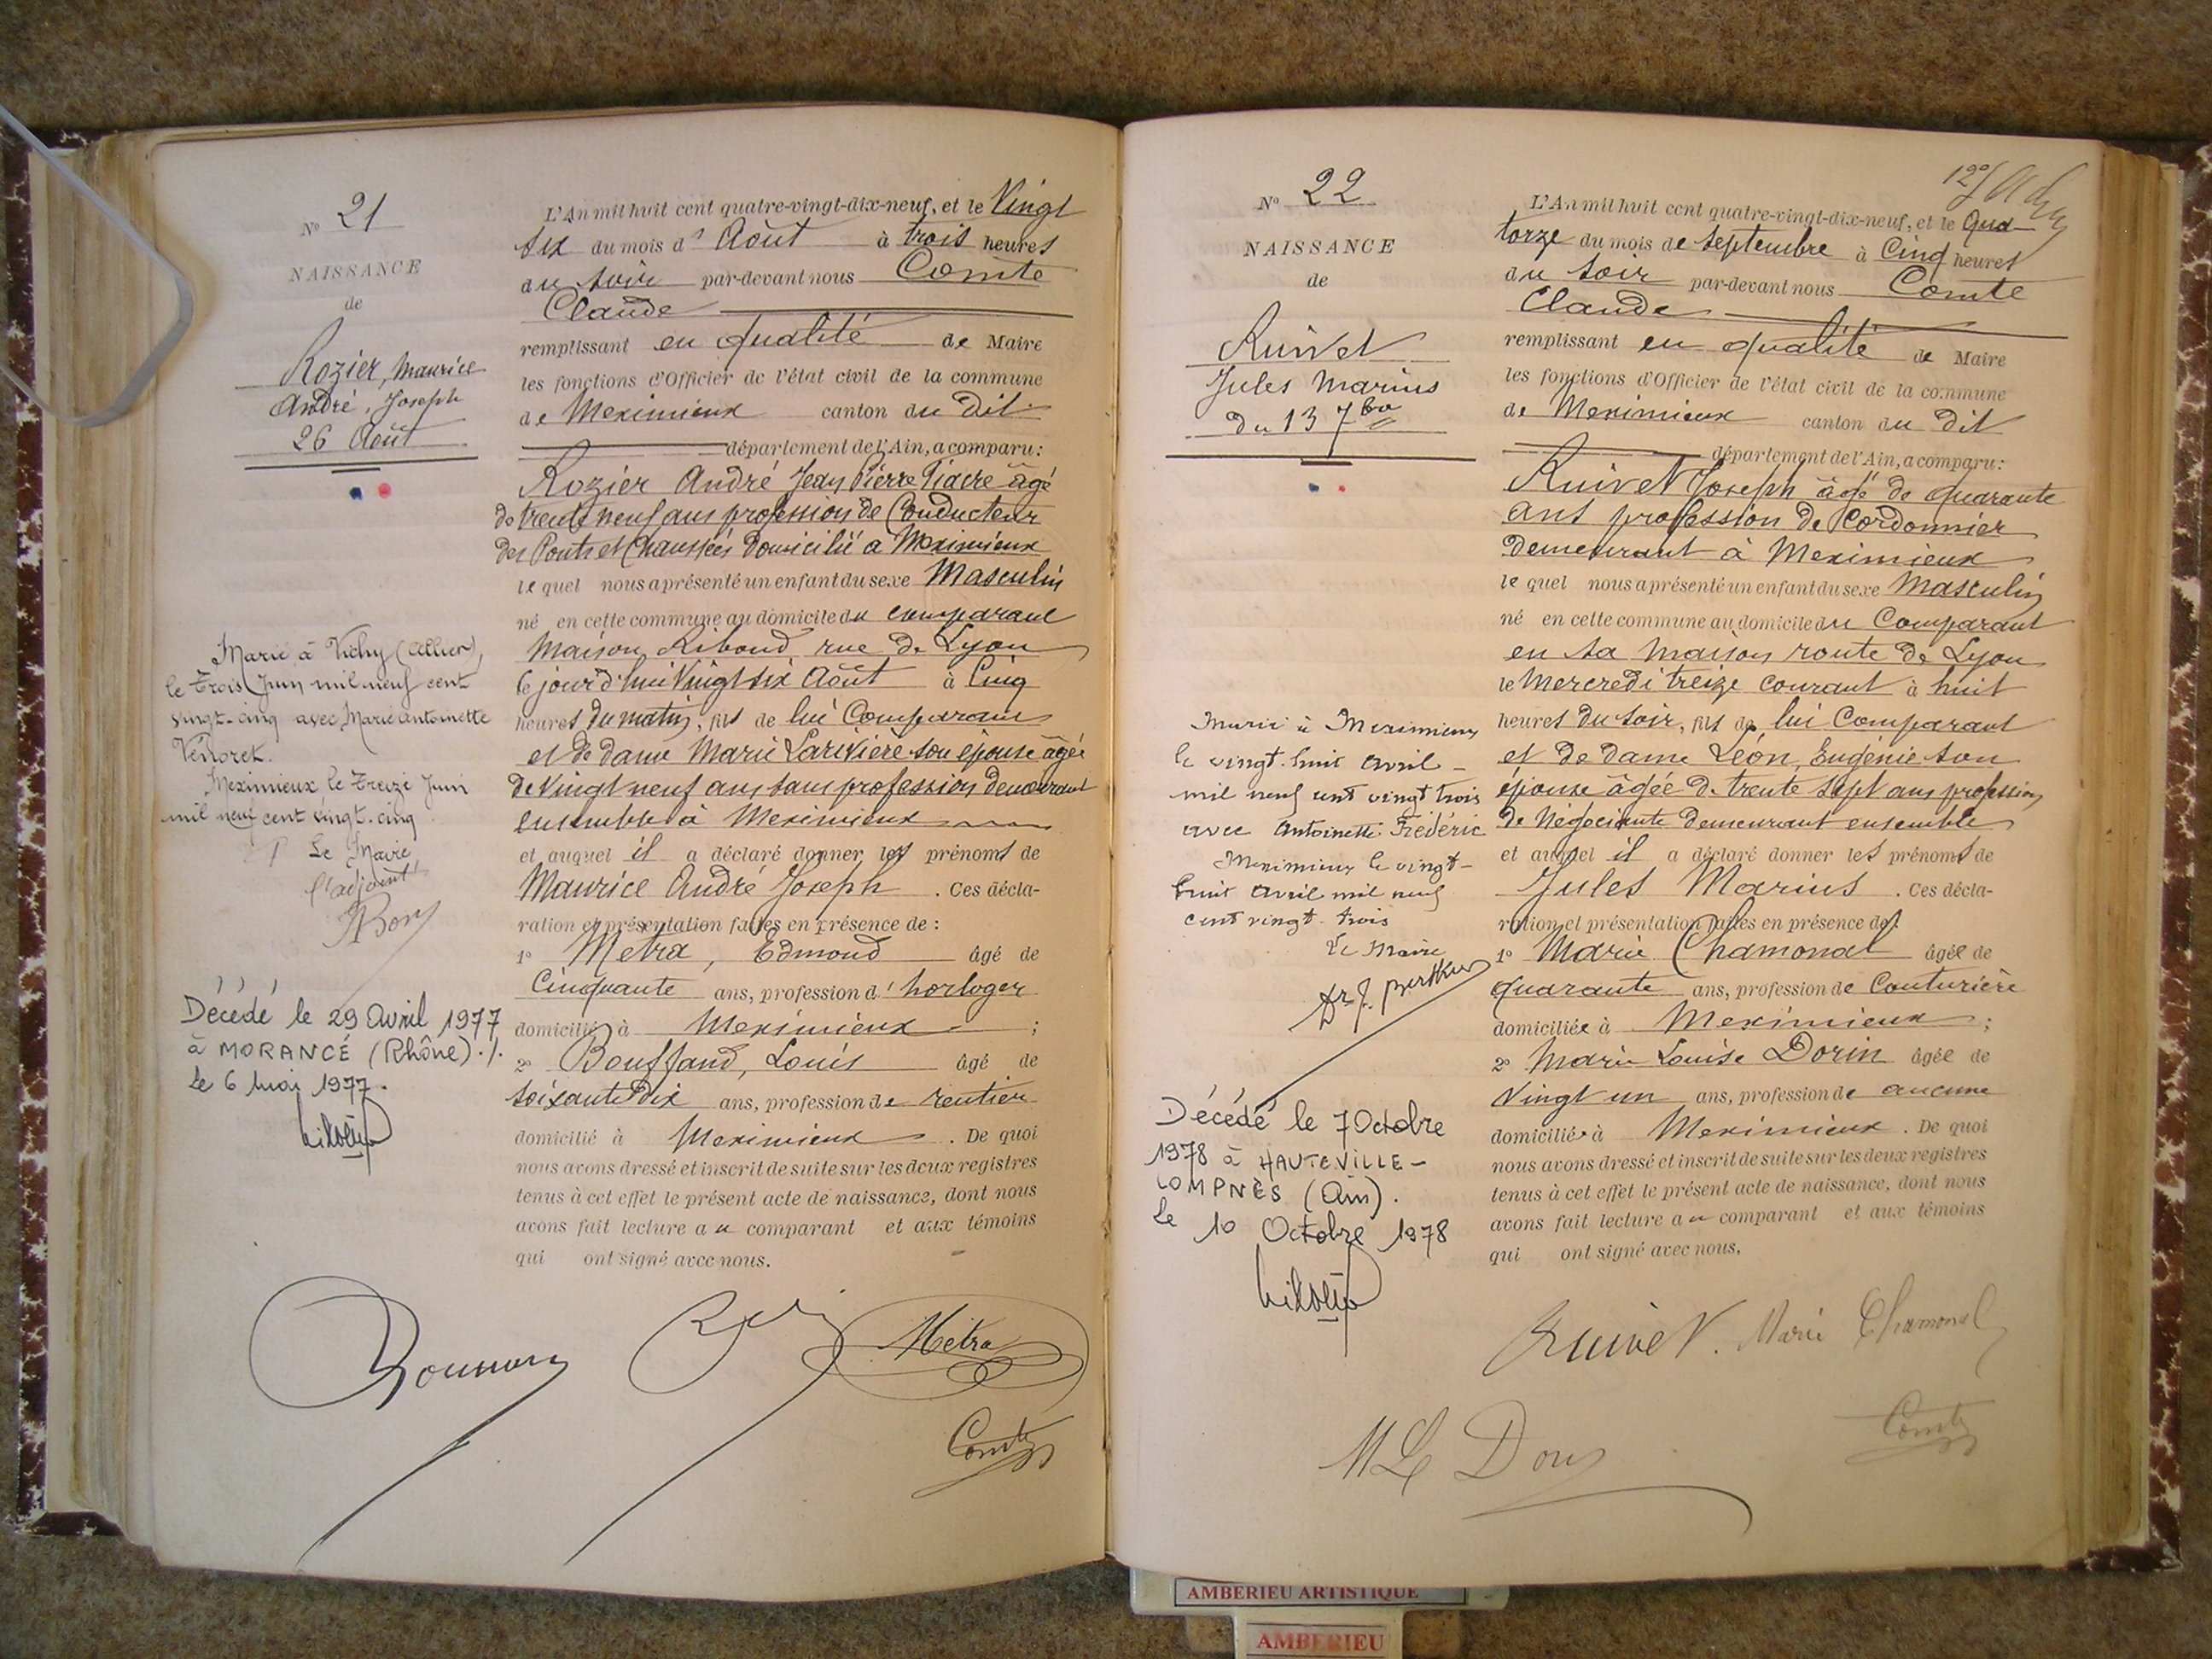 N° 21
NAISSANCE
de
Rozier, Maurice
André, Joseph
26 Août
Marié à Vichy (Allier),
le trois Juin mil neuf cent
vingt-cinq avec Marie Antoinette
Meximieux le treize Juin
mil neuf cent vingt-cinq
Le Maire
l'adjoint
Décédé le 29 Avril 1977
à MORANCÉ (Rhône)./.
Le 6 mai 1977.
L'An mil huit cent quatre-vingt-dix-neuf, et le Vingt
six du mois d' Août à trois heures
du soir par-devant nous Comte
Claude
remplissant en qualité de Maire
les fonctions d'Officier de l'état civil de la commune
de Meximieux canton du dit
département de l'Ain, a comparu:
Rozier André Jean Pierre Fiacre âgé
de trente neuf ans profession de Conducteur
des Ponts et Chaussées domicilié à Meximieux
lequel nous a présenté un enfant du sexe Masculin
né en cette commune au domicile du comparant
Maison Riboud rue de Lyon
le jourd'hui Vingt six Août à Cinq
heures du matin, fils de lui Comparant
et de dame Marie Larivière son épouse âgée
de Vingt neuf ans sans profession demeurant
ensemble à Meximieux
et auquel il a déclaré donner les prénoms de
Maurice André Joseph . Ces décla-
ration et présentation faites en présence de :
1° Metra, Edmond âgé de
Cinquante ans, profession d' horloger
domicilié à Meximieux ;
2° Bouffand, Louis âgé de
soixante dix ans, profession de rentier
domicilié à Meximieux . De quoi
nous avons dressé et inscrit de suite sur les deux registres
tenus à cet effet le présent acte de naissance, dont nous
avons fait lecture au comparant et aux témoins
qui ont signé avec nous.
Metra
Comte
N° 22
NAISSANCE
de
Ruivet
Jules Marius
Du 13 7bre
Marié à Meximieux
le vingt-huit avril
mil neuf cent vingt trois
avec Antoinette Frédéric
Meximieux le vingt-
huit avril mil neuf
cent vingt-trois
Le Maire
Décédé le 7 Octobre
1978 à HAUTEVILLE-
LOMPNÈS (Ain).
Le 10 Octobre 1978
L'An mil huit cent quatre-vingt-dix-neuf, et le Qua-
torze du mois de Septembre à Cinq heures
du soir par-devant nous Comte
Claude
remplissant en qualité de Maire
les fonctions d'Officier de l'état civil de la commune
de Meximieux canton du dit
département de l'Ain, a comparu:
Ruivet Joseph âgé de quarante
ans profession de Cordonnier
demeurant à Meximieux
lequel nous a présenté un enfant du sexe Masculin
né en cette commune au domicile du Comparant
en sa maison route de Lyon
le Mercredi treize courant à huit
heures du soir, fils de lui Comparant
et de dame Léon, Eugénie son
épouse âgée de trente sept ans profession
de Négociante demeurant ensemble
et auquel il a déclaré donner les prénoms de
Jules Marius . Ces décla-
ration et présentation faites en présence de:
1° Marie Chamonal âgée de
quarante ans, profession de Couturière
domiciliée à Meximieux ;
2° Marie Louise Dorin âgée de
Vingt un ans, profession de aucune
domiciliée à Meximieux . De quoi
nous avons dressé et inscrit de suite sur les deux registres
tenus à cet effet le présent acte de naissance, dont nous
avons fait lecture au comparant et aux témoins
qui ont signé avec nous.
Ruivet. Marie Chamonal
Comte
AMBERIEU ARTISTIQUE
AMBERIEU